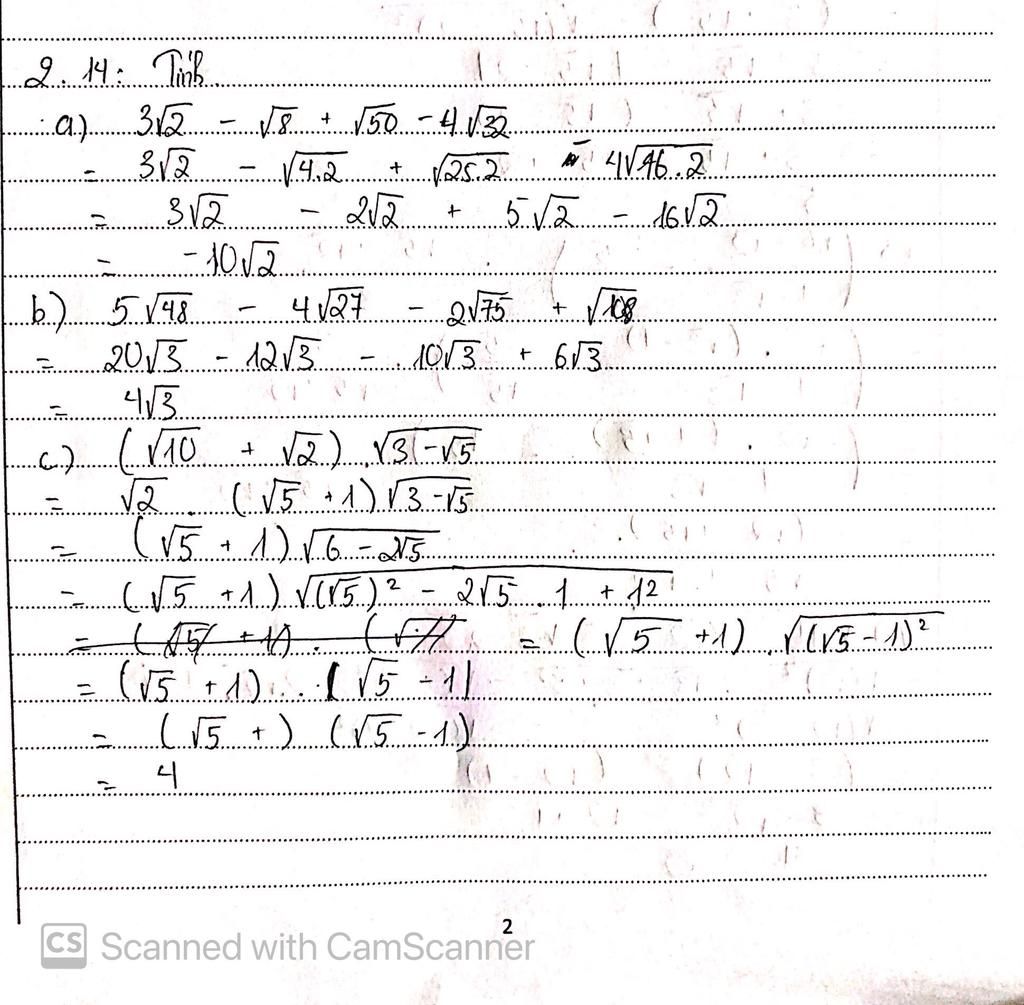 2.14: Tính
a) 3√2 - √8 + √50 - 4√32
= 3√2 - √4.2 + √25.2 - 4√16.2
= 3√2 - 2√2 + 5√2 - 16√2
= -10√2
b) 5√48 - 4√27 - 2√75 + √108
= 20√3 - 12√3 - 10√3 + 6√3
= 4√3
c) (√10 + √2) . √(3 - √5)
= √2 . (√5 + 1) √(3 - √5)
= (√5 + 1) √(6 - 2√5)
= (√5 + 1) √((√5)² - 2√5 . 1 + 1²)
= (√5 + 1) . √((√5 - 1)²)
= (√5 + 1) . |√5 - 1|
= (√5 + ) (√5 - 1)
= 4
2
CS Scanned with CamScanner